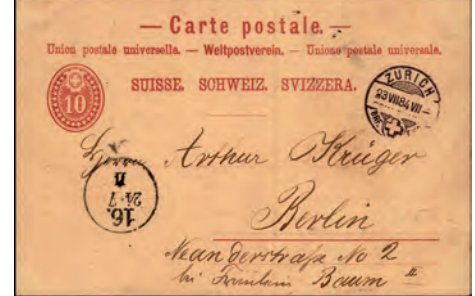 — Carte postale. —
Union postale universelle. — Weltpostverein. — Unione postale universale.
SUISSE. SCHWEIZ. SVIZZERA.
10
ZÜRICH
23 VII 84 VII
Herrn Arthur Krüger
16.
24·7
II
Berlin
Neanderstraße No 2
bei Fräulein Baum II